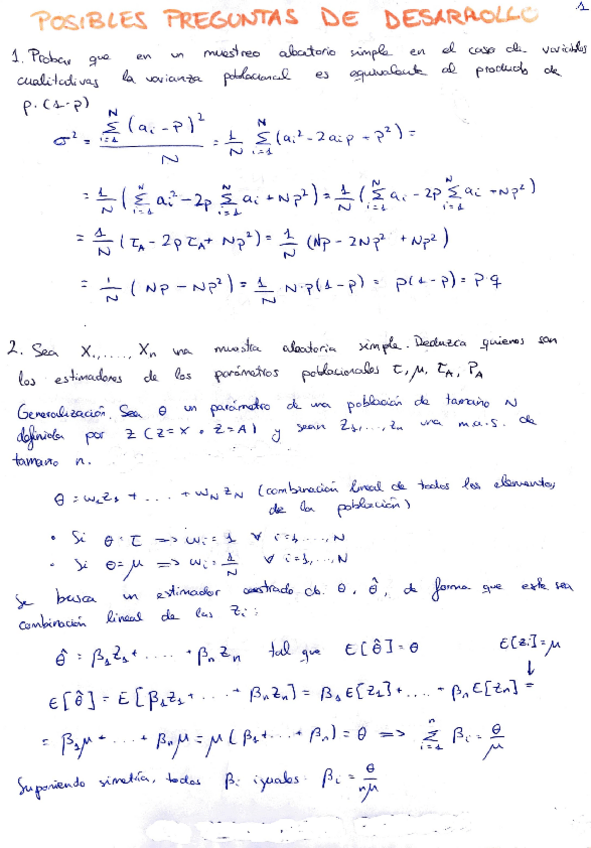 POSIBLES PREGUNTAS DE DESARROLLO 1
1. Probar que en un muestreo aleatorio simple en el caso de variables
cualitativas la varianza poblacional es equivalente al producto de
p.(1-p)
σ² = Σ_{i=1}^{N} (ai - p)² / N = 1/N Σ_{i=1}^{N} (ai² - 2aip + p²) =
= 1/N (Σ_{i=1}^{N} ai² - 2p Σ_{i=1}^{N} ai + Np²) = 1/N (Σ_{i=1}^{N} ai - 2p Σ_{i=1}^{N} ai + Np²)
= 1/N (τA - 2pτA + Np²) = 1/N (Np - 2Np² + Np²)
= 1/N (Np - Np²) = 1/N N·p(1-p) = p(1-p) = p·q
2. Sea X1, ....., Xn una muestra aleatoria simple. Deduzca quienes son
los estimadores de los parámetros poblacionales τ, μ, τA, PA
Generalización. Sea θ un parámetro de una población de tamaño N
definida por Z (Z=X o Z=A) y sean Z1, ..., Zn una m.a.s. de
tamaño n.
θ = w1Z1 + .... + wNZN (combinación lineal de todos los elementos
de la población)
• Si θ = τ => wi = 1 ∀ i=1, ..., N
• Si θ = μ => wi = 1/N ∀ i=1, ..., N
Se busca un estimador centrado de θ, θ̂, de forma que este sea
combinación lineal de las Zi:
θ̂ = β1Z1 + ..... + βnZn tal que E[θ̂] = θ E[Zi] = μ
E[θ̂] = E[β1Z1 + .... + βnZn] = β1E[Z1] + .... + βnE[Zn] =
= β1μ + .... + βnμ = μ(β1 + ... + βn) = θ => Σ_{i=1}^{n} βi = θ/μ
Suponiendo simetría, todos βi iguales: βi = θ/nμ